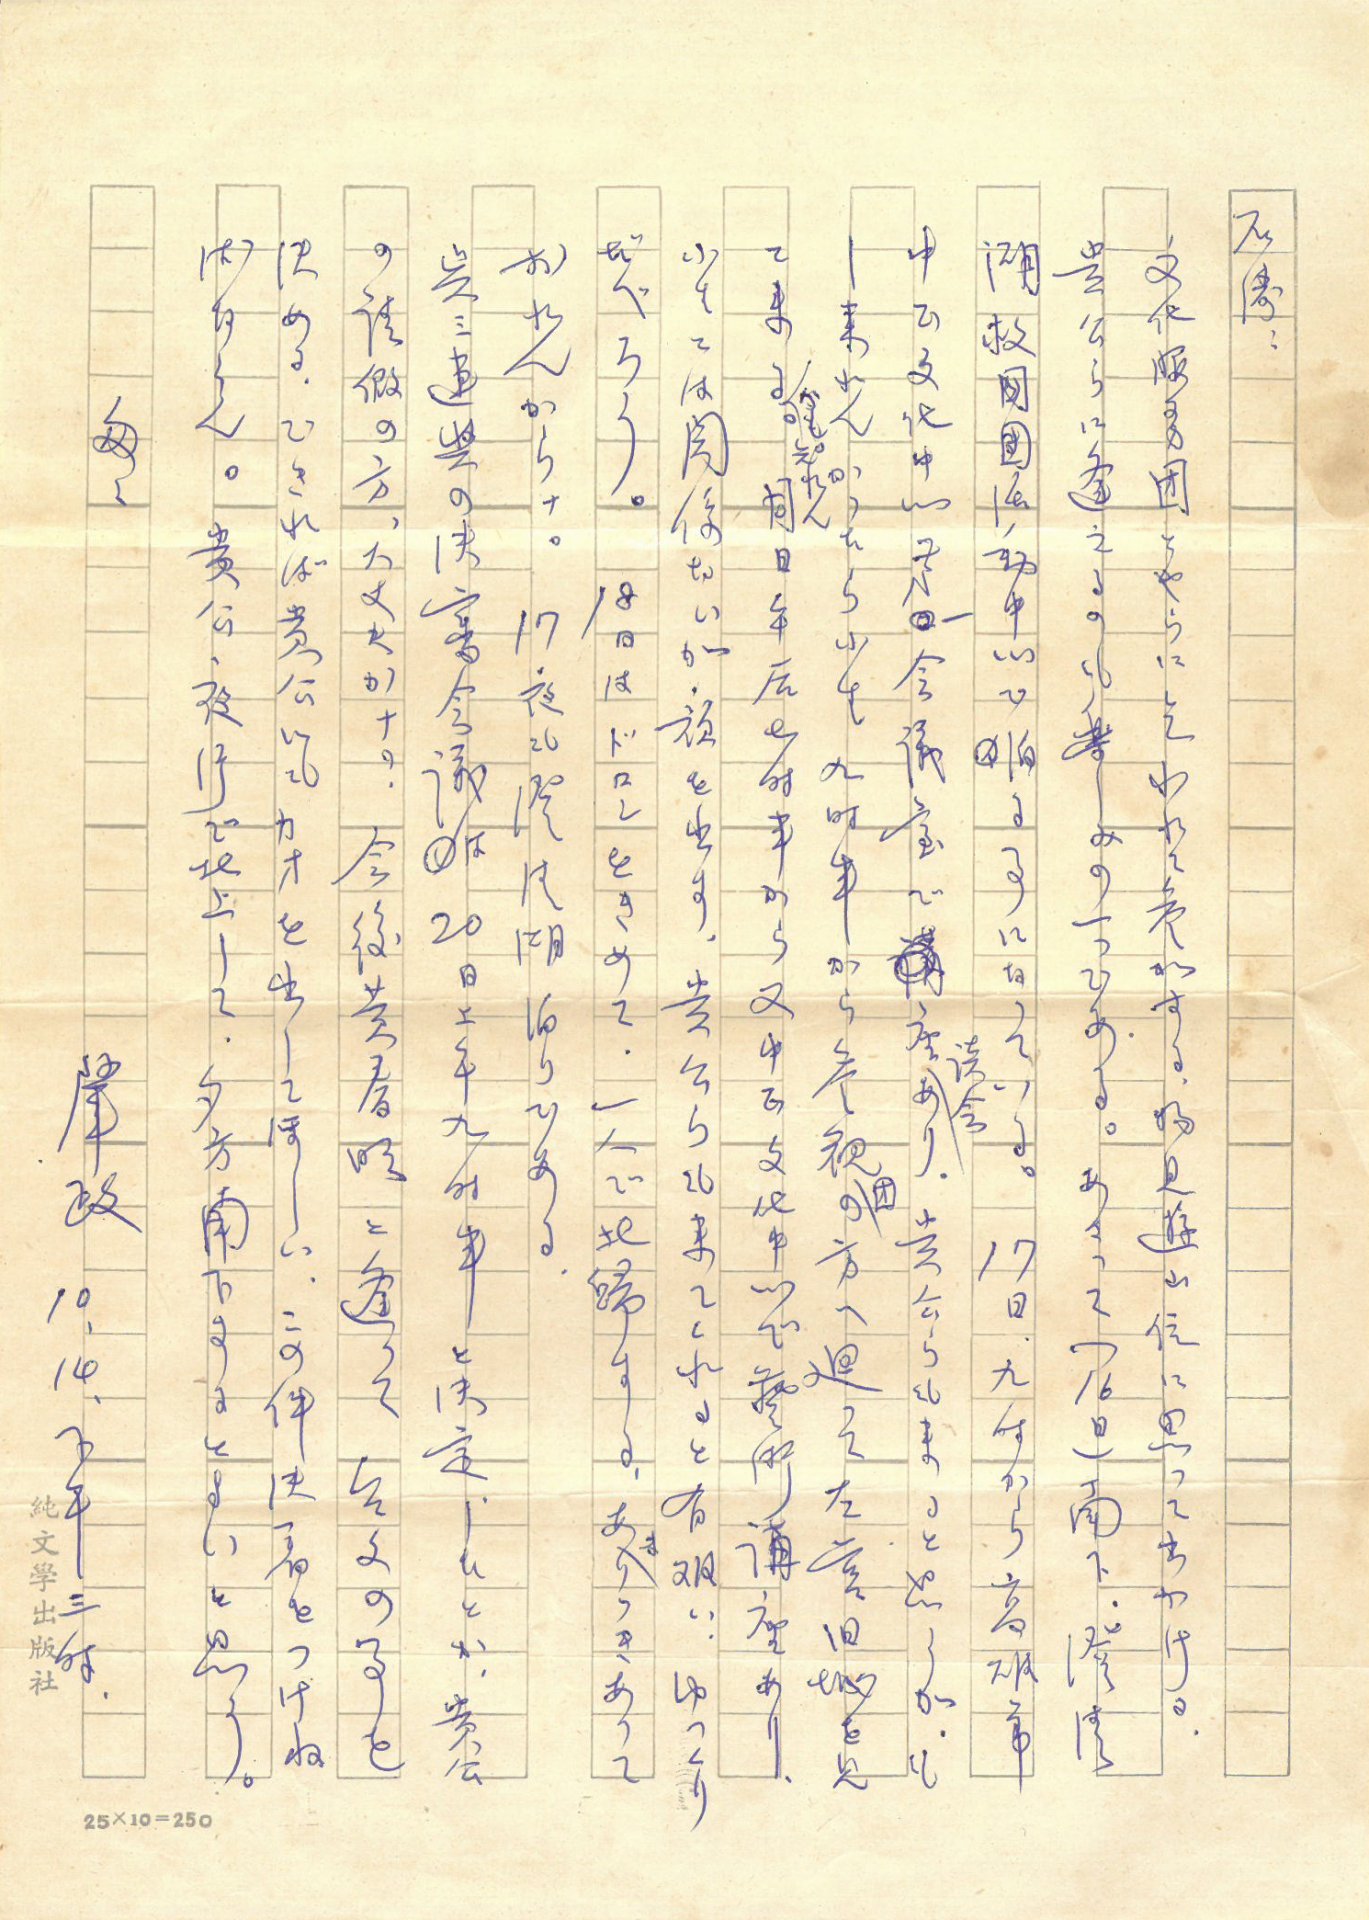 石濤：
文化服務団とやらにさそわれて参加する．物見遊山位に思って出かける．
貴公らに逢えるのも楽しみの一つである。あさって(16日)南下．澄清
湖救国団活動中心で泊る事になっている。17日．九時から高雄市
中正文化中心第一会議室で座談会あり．貴公らも来ると思しが．も
し来れんかったら小生九時半から参観団の方へ廻って左営旧城を見
て来る。同日午后七時半から又中正文化中心で藝術講座あり．
小生には関係ないが．顔を出す．貴公らも来てくれると有難い．ゆっくり
だべろう。18日はドロンをきめて．一人で北帰する．あまりつきあって
おれんからナ。17夜も澄清湖泊りである．
呉三連賞の決審会議は20日上午九時半と決定したとか．貴公
の評徴の方．大丈夫かナ？今後黄春明と逢って 台文の事を
決める．できれば貴公もカオを出してほしい．この件決着をつけね
ばならん。貴公．夜行で北上して．夕方南下するとよいと思う。
匆々
肇政 10．14．下午三時．
純文學出版社
25×10=250